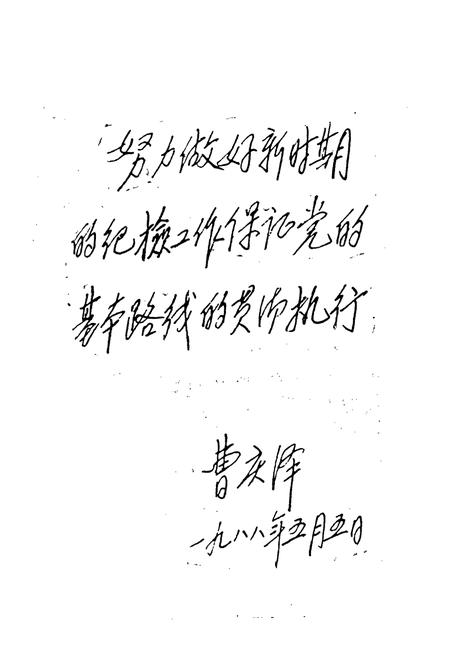 努力做好新时期
的纪檢工作保证党的
基本路线的贯彻执行
曹庆泽
一九八八年五月五日